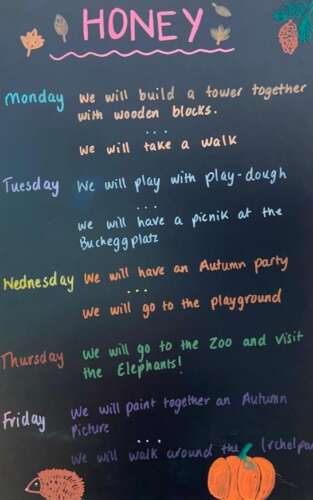 HONEY
Monday We will build a tower together
with wooden blocks.
...
We will take a walk
Tuesday We will play with play-dough
...
we will have a picnik at the
Bucheggplatz
Wednesday We will have an Autumn party
...
we will go to the playground
Thursday We will go to the Zoo and visit
the Elephants!
Friday We will paint together an Autumn
Picture
...
We will walk around the